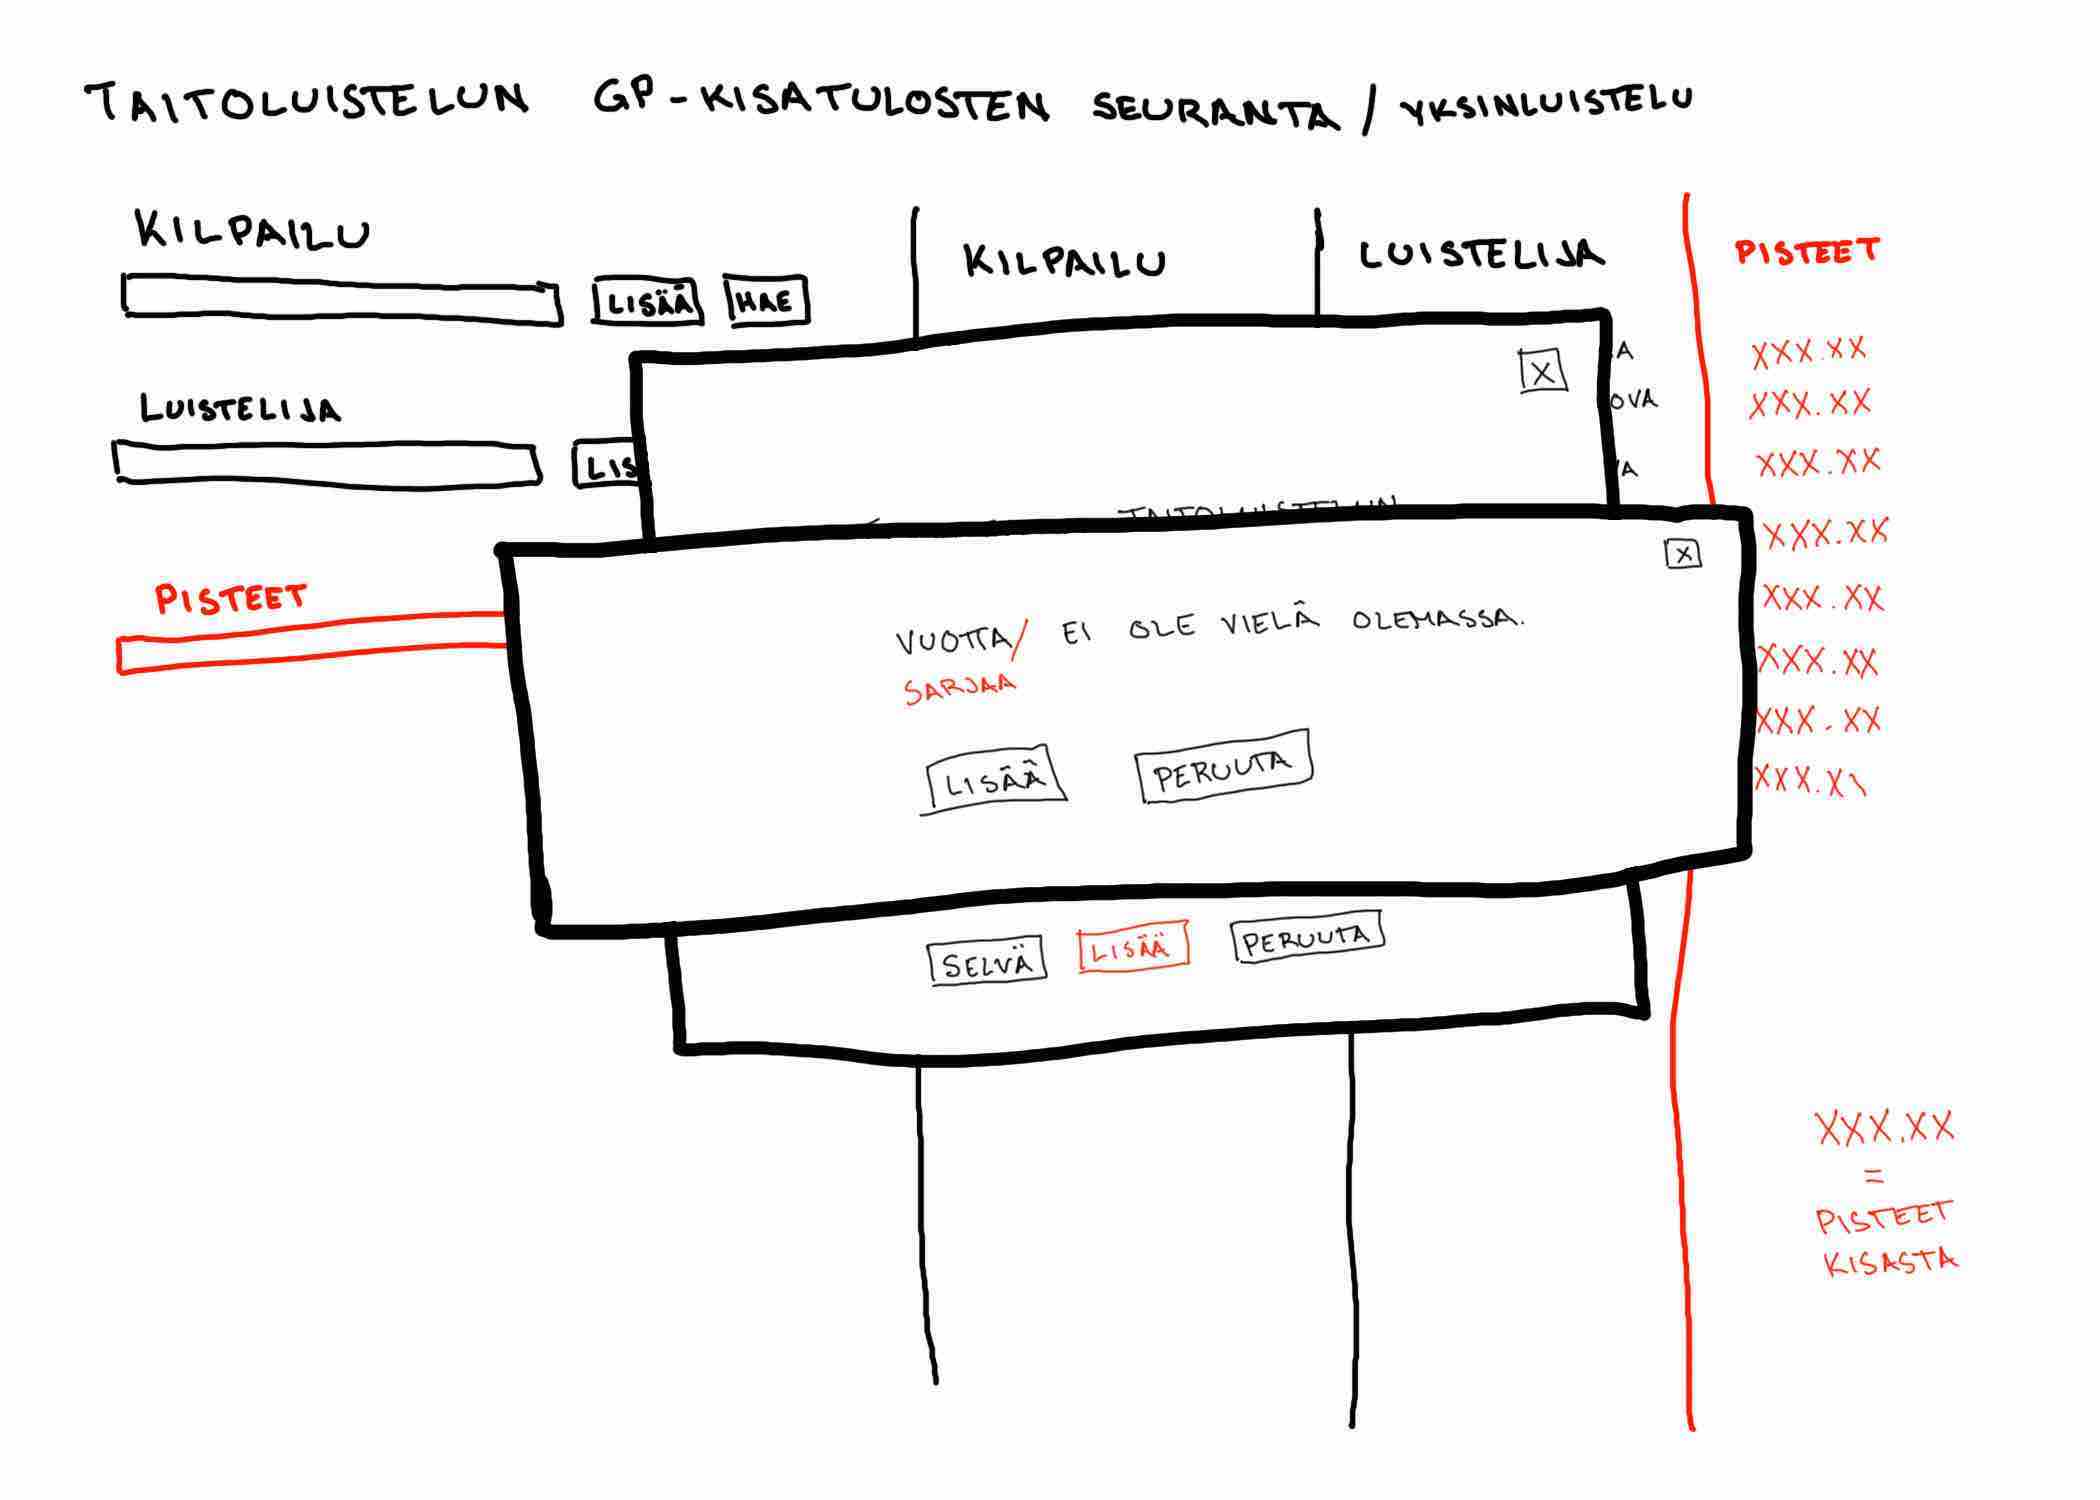 TAITOLUISTELUN GP-KISATULOSTEN SEURANTA / YKSINLUISTELU
KILPAILU
LISÄÄ HAE
LUISTELIJA
PISTEET
KILPAILU
LUISTELIJA
PISTEET
A
OVA
VA
XXX.XX
XXX.XX
XXX.XX
XXX.XX
XXX.XX
XXX.XX
XXX.XX
X
TAITOLUISTELUN
X
VUOTTA/ EI OLE VIELÄ OLEMASSA.
SARJAA
LISÄÄ PERUUTA
SELVÄ LISÄÄ PERUUTA
XXX.XX
=
PISTEET
KISASTA